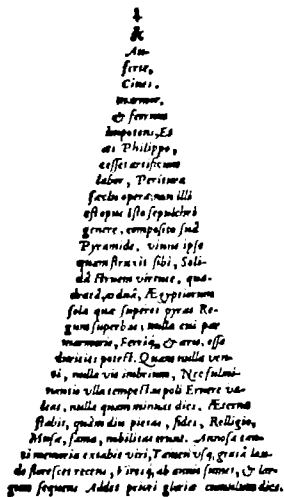 &
An-
ferte,
Cives,
marmor,
& ferrum
Impotens, Es
at Philippo,
cesset artificum
labor, Peritura
sæcli opera: non illi
est opus isto sepulchri
genere, composito sud
Pyramide, vivus ipse
quam struxit sibi, Soli-
dâ struem virtute, qua-
dratâ, ardua, Ægyptiorum
sola quæ superet pyras Re-
gum superbas; nulla cui par
marmoris, Ferriq, & aris, esse
durities potest. Quam nulla ven-
ti, nulla vis imbrium, Nec fulmi-
nantis ulla tempestas poli Ernere va-
leat, nulla quam minuat dies. Æterna
stabit, quàm diu pietas, fides, Relligio,
Musa, fama, nobilitas erunt. Annosa tan-
ti memoria extabit viri, Tamen usq, gratâ lau-
de florescet recens, Viresq, ab annis sumet, & lar-
gum sequens Addet priori gloriæ cumulum dies.